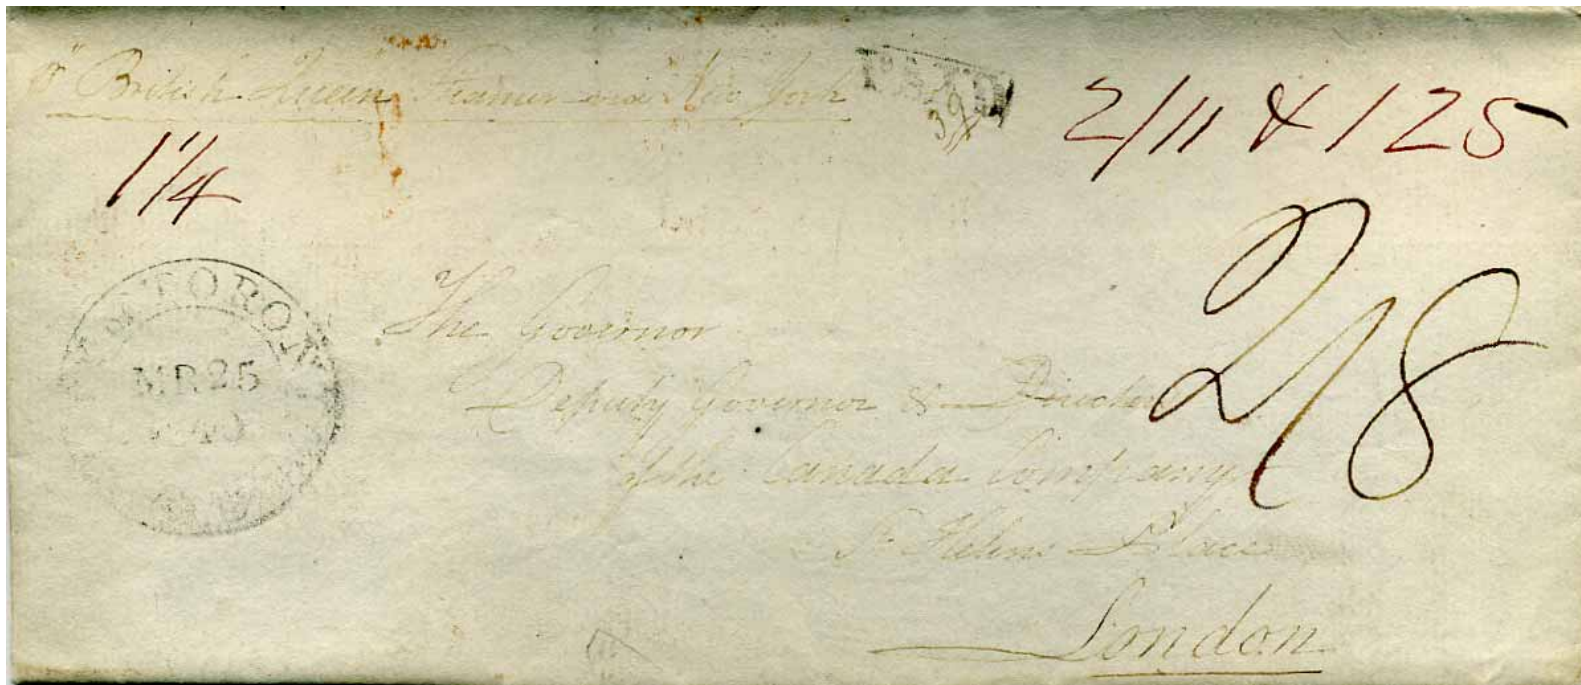 pr "British Queen" Steamer via New York
PAID
39
2/11 & 125
1 1/4
2/8
CITY OF TORONTO
MR 25
1840
The Governor
Deputy Governor & Directors
of the Canada Company
St Helens Place
London